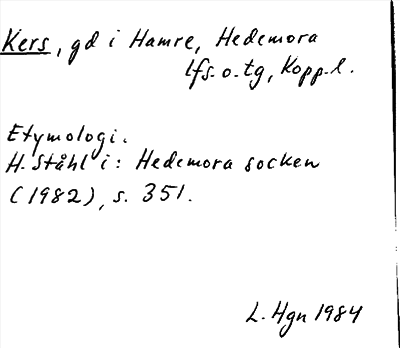 Kers, gd i Hamre, Hedemora
lfs. o. tg, Kopp. l.
Etymologi.
H. Ståhl i: Hedemora socken
(1982), s. 351.
L. Hgn 1984